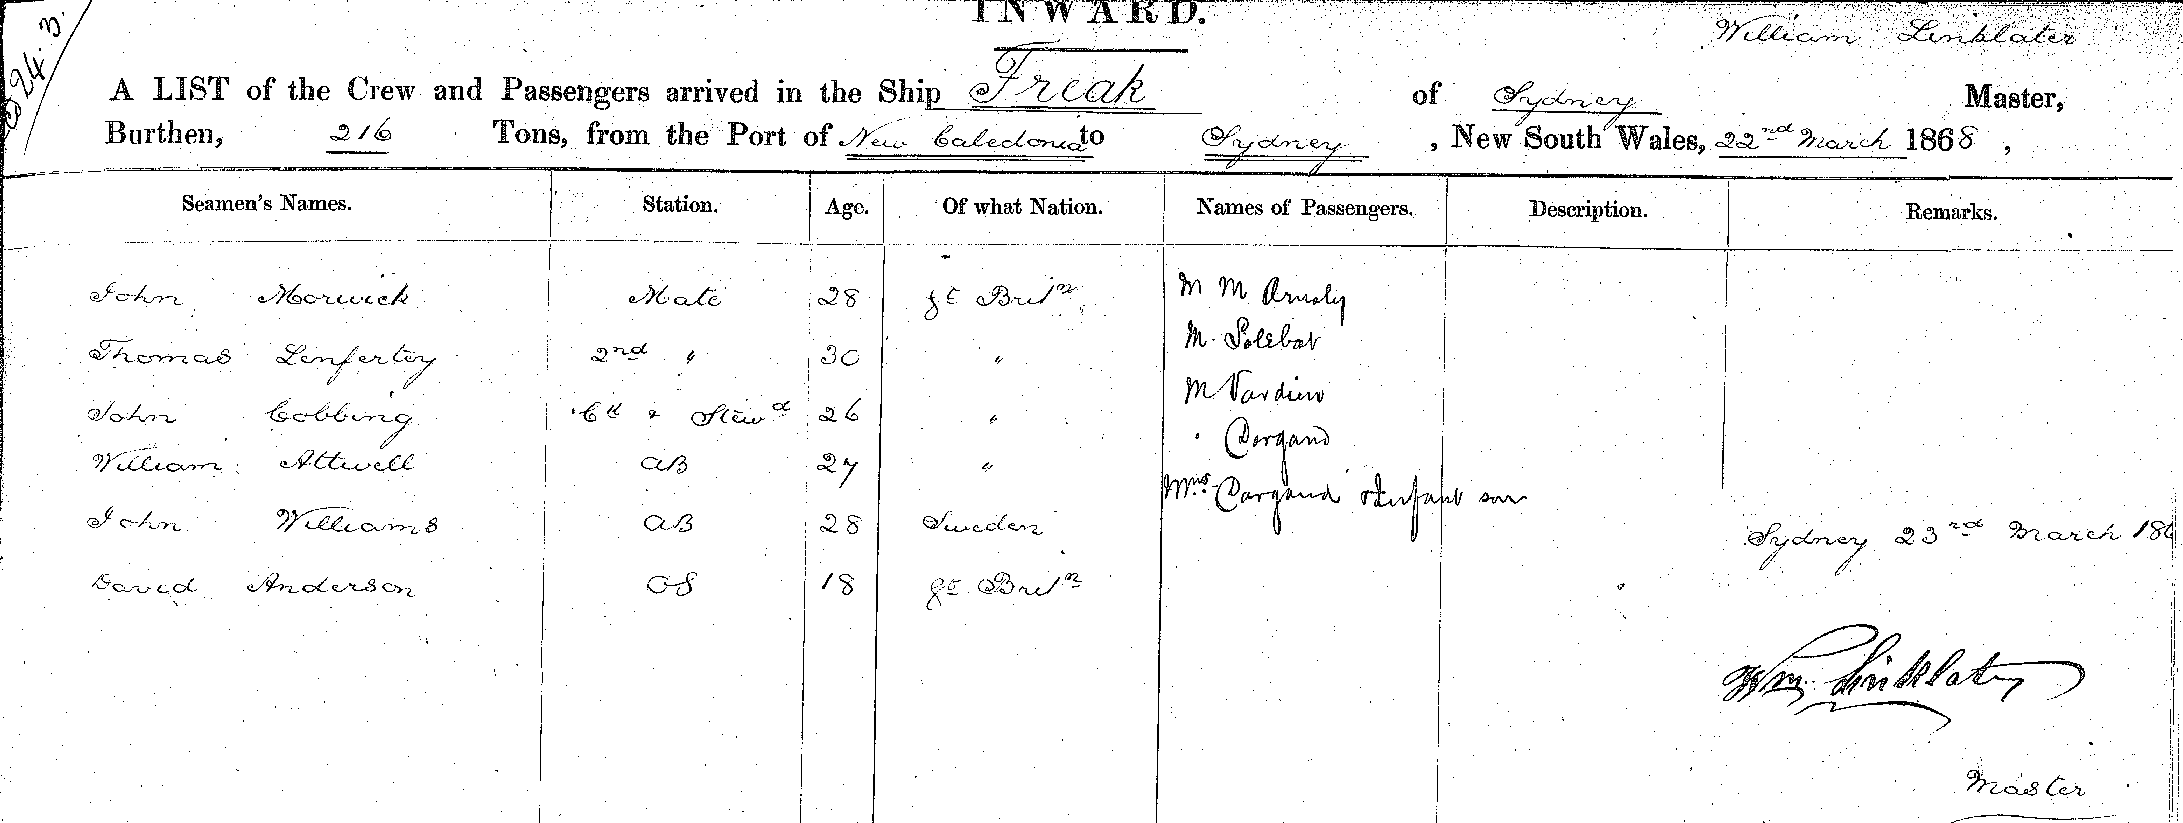 24.3.
INWARD.
William Linklater
A LIST of the Crew and Passengers arrived in the Ship Freak of Sydney Master,
Burthen, 216 Tons, from the Port of New Caledonia to Sydney, New South Wales, 22nd March 1868,
Seamen's Names. Station. Age. Of what Nation. Names of Passengers. Description. Remarks.
John Morwick Mate 28 Gt Britn M M
Thomas Lenfertey 2nd " 30 " M.
John Cobbing Ck & Stewd 26 " M Vardin
William Attwell AB 27 " " Dargand
John Williams AB 28 Sweden Mrs Dargand & Infant son
Sydney 23rd March 186
David Anderson OS 18 Gt Britn
Wm Linklater
Master